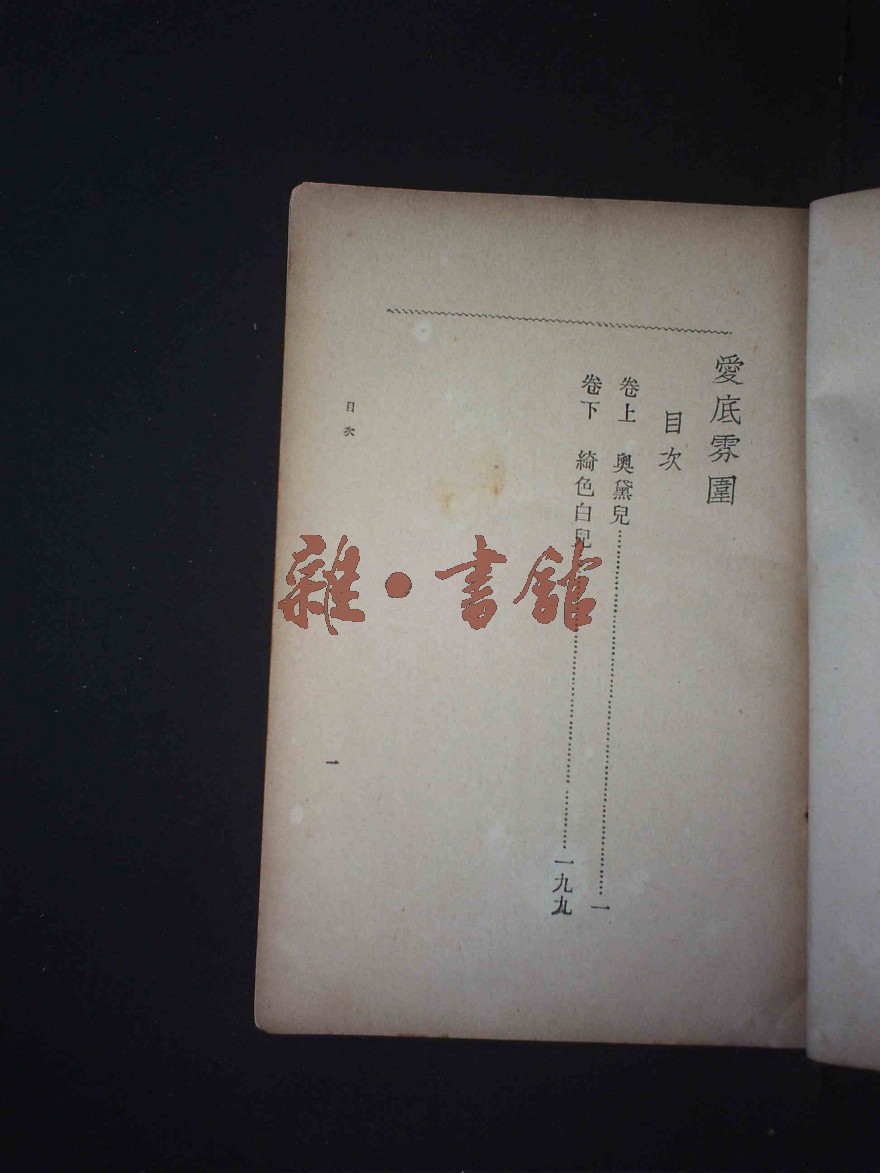 愛底雰圍
目次
卷上 奧黛兒……一
卷下 綺色白兒……一九九
目次
一
雜·書館